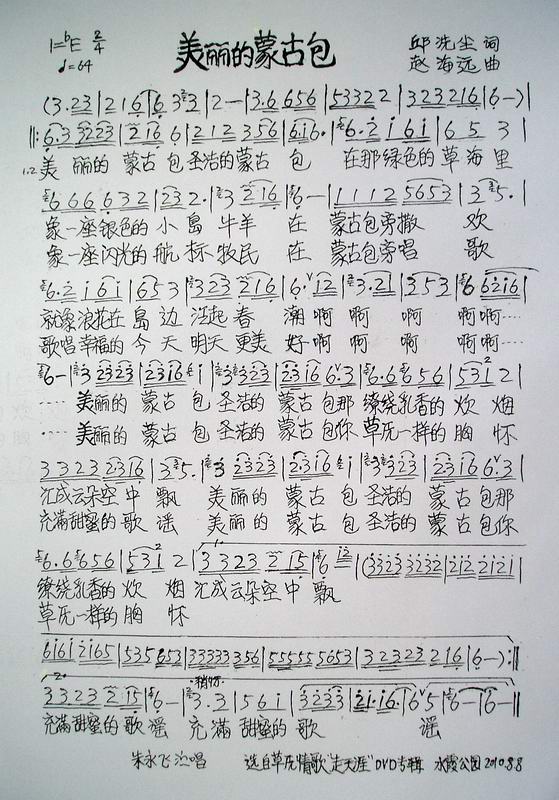 1=ᵇE 2/4
♩=64
美丽的蒙古包
邱洗尘 词
赵海远 曲
(3.23|216|6 33|2—|3.6 656|5333 2 2|323216|6—)|
‖:6.3 2323|2 16 6|212 356|616.|6.2 161|6 5 3|
1.2.美 丽的 蒙古 包圣洁的蒙古 包 在那绿色的草海里
666632|232.|3 216|6—|1112 5653|3 5.|
象一座银色的小岛 牛羊 在 蒙古包旁撒 欢
象一座闪光的航标 牧民 在 蒙古包旁唱 歌
6.2 161|653|323 216|6.12|3.21|353|6 6216|
就象浪花在岛边 泛起春 潮啊 啊 啊 啊啊……
歌唱幸福的今天 明天更美 好啊 啊 啊 啊啊……
6—|3 2323|2316 1|3 323|2316 6.3|6.6 656|531 2|
…… 美丽的 蒙古 包 圣洁的 蒙古包那 缭绕乳香的 炊 烟
…… 美丽的 蒙古 包 圣洁的 蒙古包你 草原一样的 胸 怀
3323 2316|35.|3 2323|2316 1|3 323|2316 6.3|
汇成云朵空中 飘 美丽的 蒙古 包 圣洁的 蒙古包那
充满甜蜜的歌 谣 美丽的 蒙古 包 圣洁的 蒙古包你
6.6 656|531 2|3323 2 15|6 12|(3323 3232|212 2121|
缭绕乳香的 炊 烟 汇成云朵空中 飘
草原一样的 胸 怀
6161 2165|535 653|33333 356|55555 5653|32323 216|6—):‖
稍慢
3323 2 15|6—|3.3|561|3233|21.16.|6 5|6—|6—‖
充满甜蜜的歌谣 充满 甜蜜的 歌 谣
朱永飞演唱 选自草原情歌"走天涯"DVD专辑 水霞公园2010.8.8